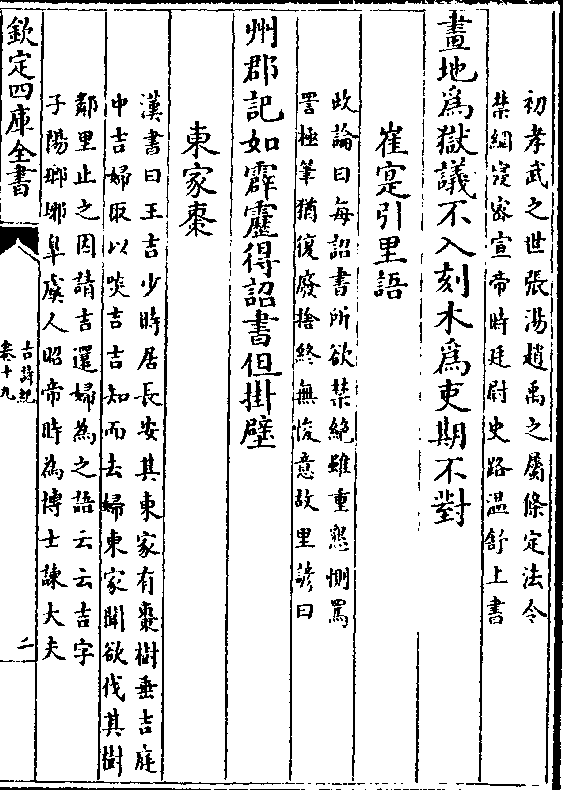 初孝武之世張湯趙禹之屬條定法令
禁網寖密宣帝時廷尉史路溫舒上書
畫地爲獄議不入刻木爲吏期不對
崔寔引里語
政論曰每詔書所欲禁絶雖重懇惻罵
詈極筆猶復廢捨終無悛意故里諺曰
州郡記如霹靂得詔書但掛壁
東家棗
漢書曰王吉少時居長安其東家有棗樹垂吉庭
中吉婦取以啖吉吉知而去婦東家聞欲伐其樹
鄰里止之因請吉還婦為之語云云吉字
子陽瑯琊臯虞人昭帝時為博士諫大夫
欽定四庫全書
古詩紀
卷十九
二